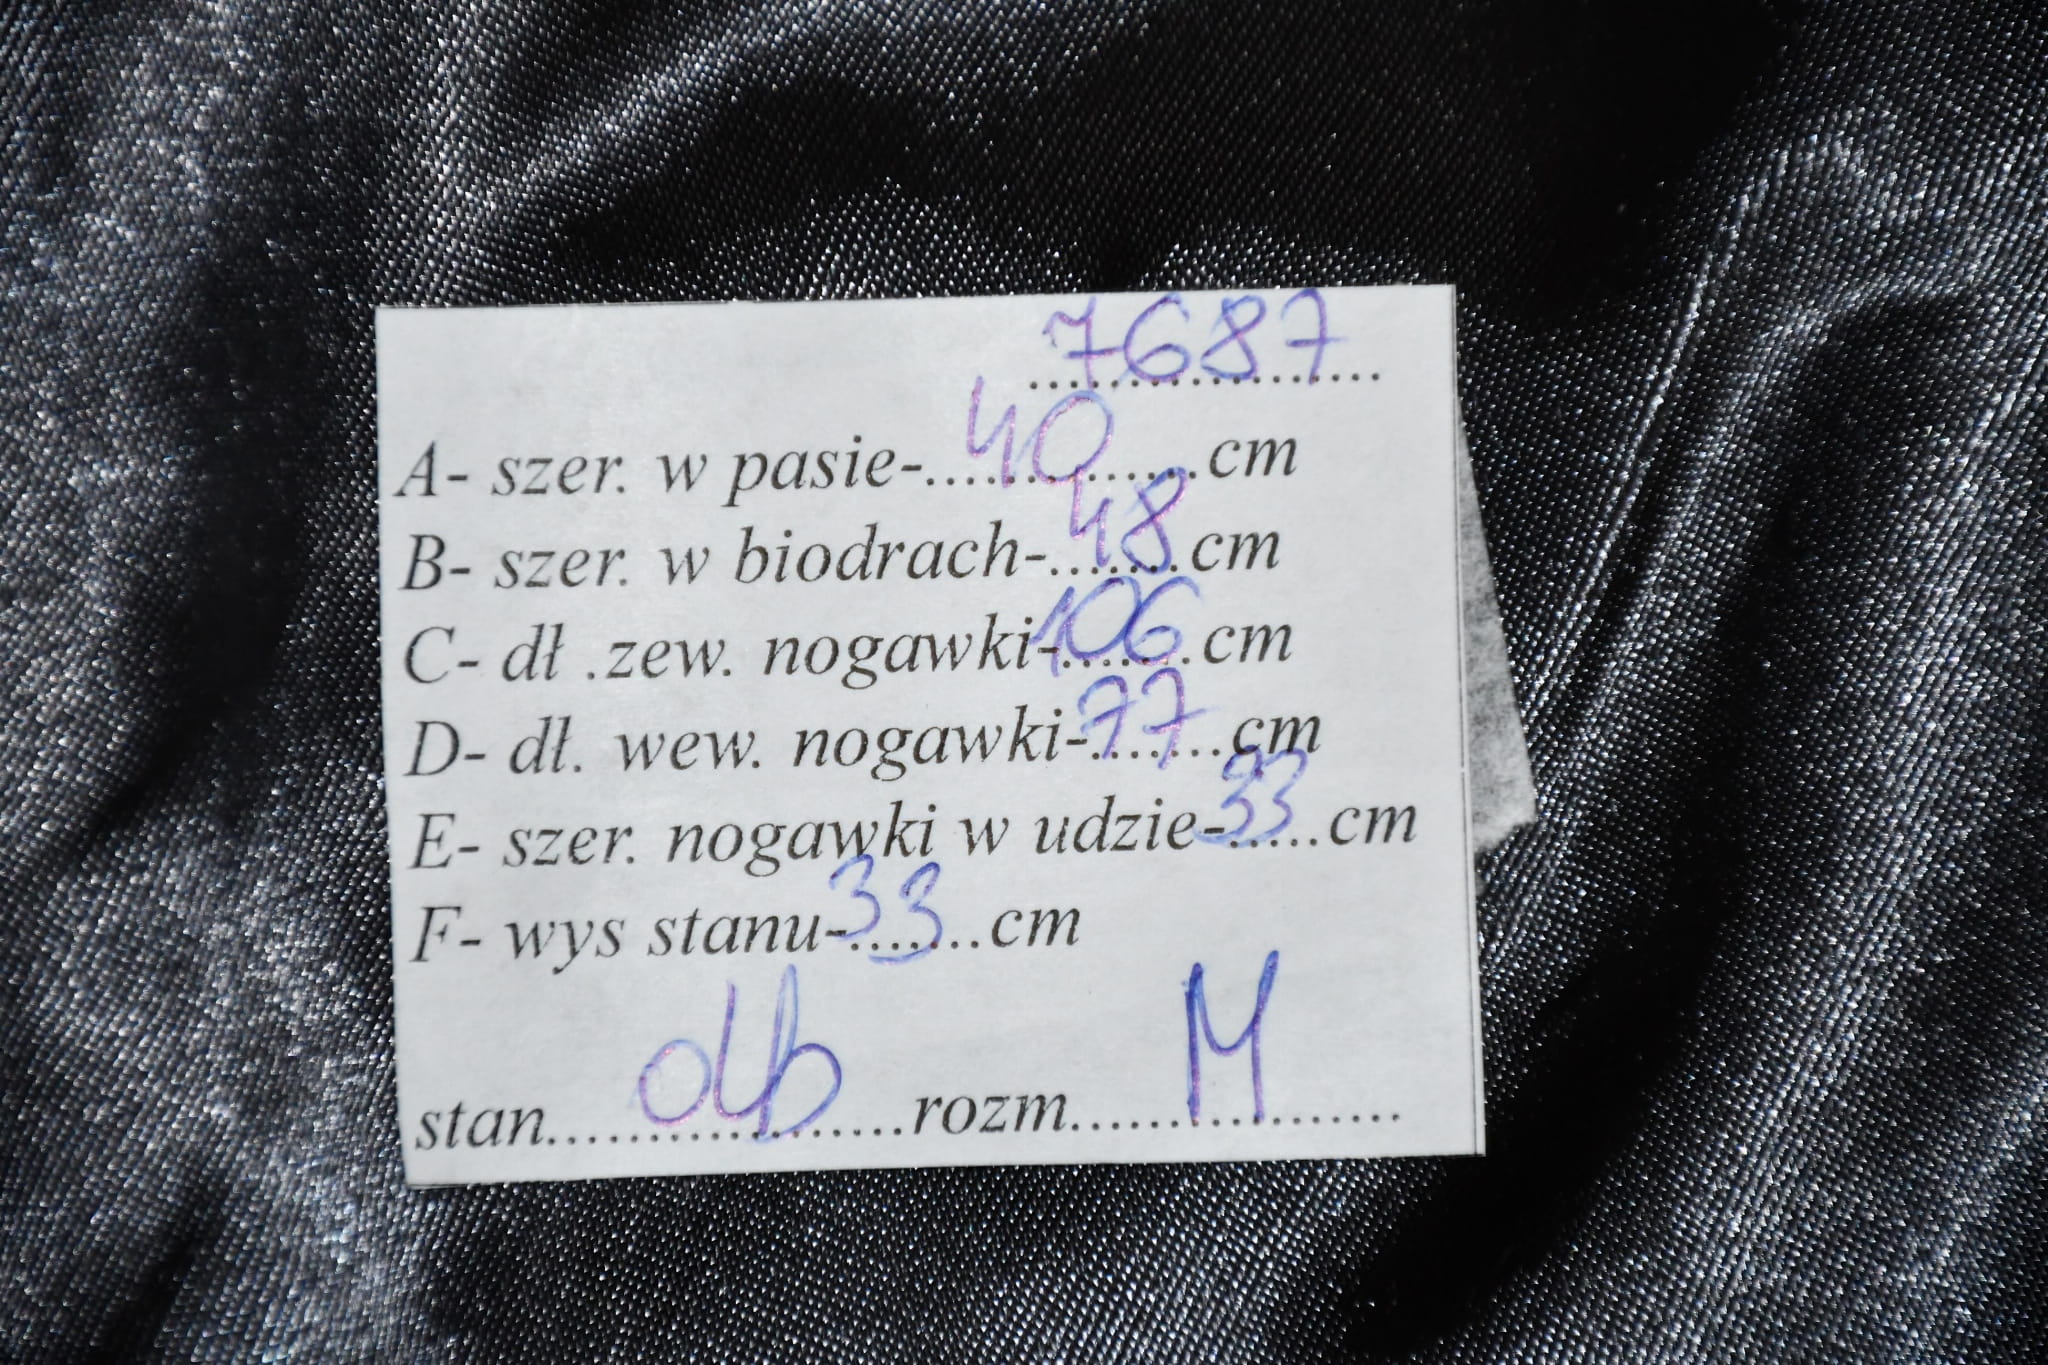 7687
A- szer. w pasie-....40....cm
B- szer. w biodrach-.48.cm
C- dł .zew. nogawki-106.cm
D- dł. wew. nogawki-77.cm
E- szer. nogawki w udzie-33...cm
F- wys stanu-33..cm
stan..................rozm......M......